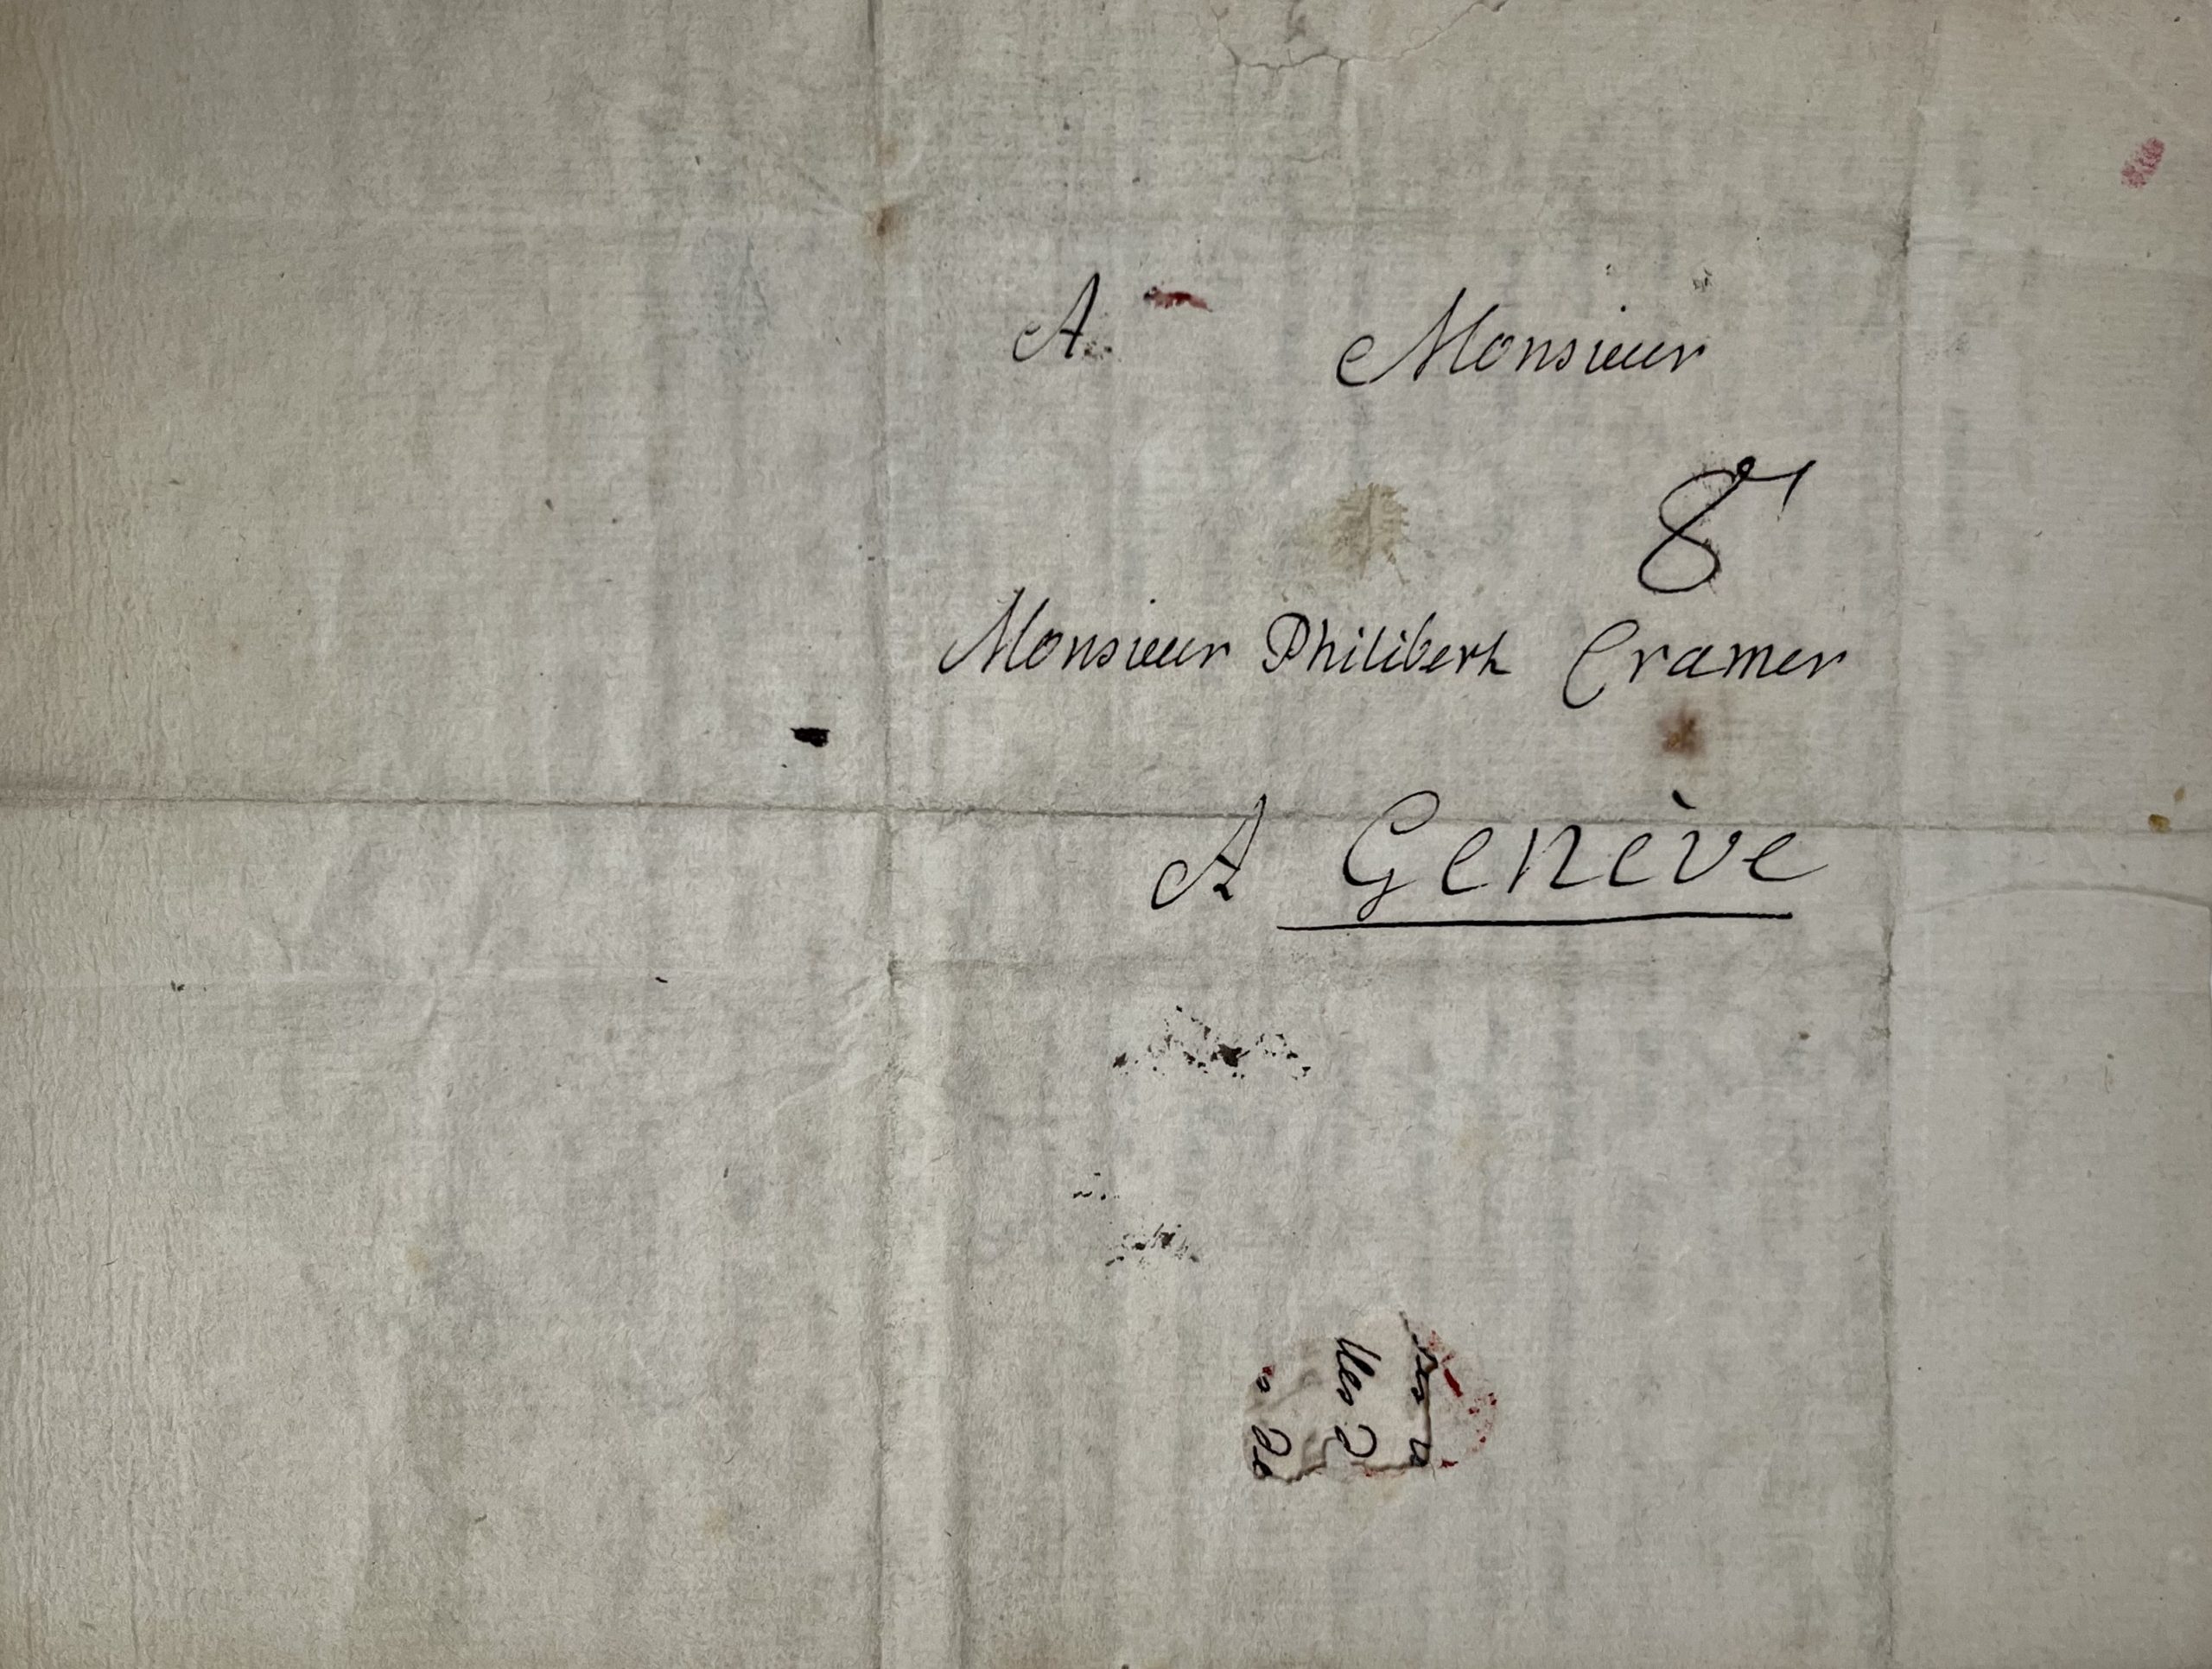 A Monsieur
8
Monsieur Philibert Cramer
A Genève